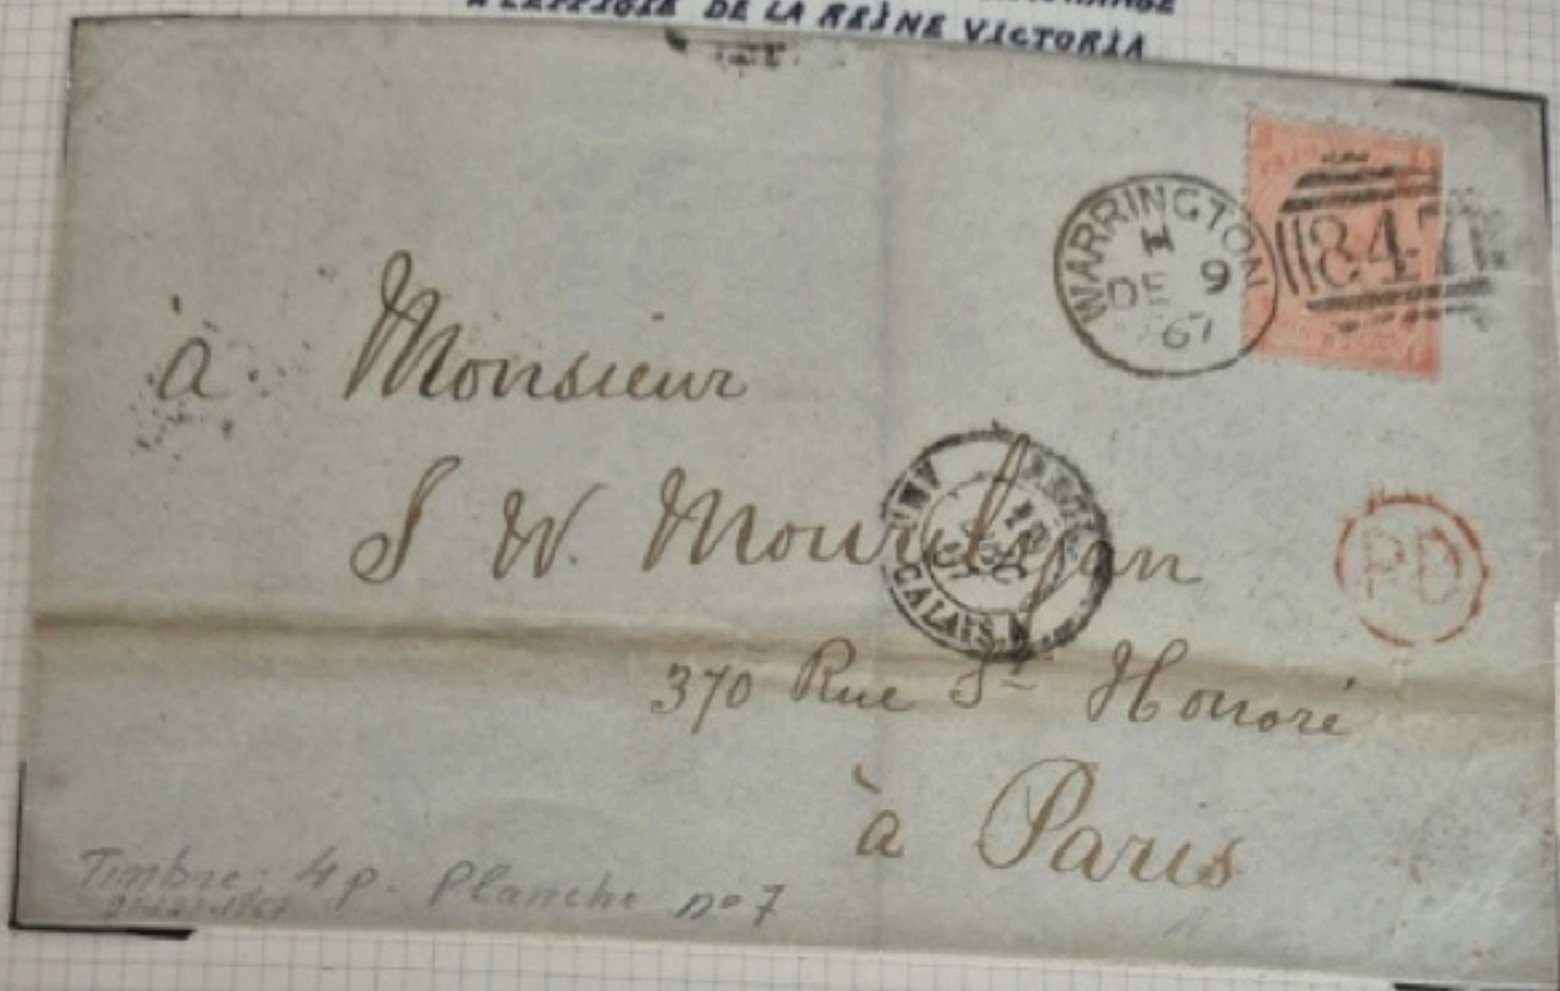 DE LA REINE VICTORIA
WARRINGTON
H
DE 9
67
847
à Monsieur
S W.
CALAIS
PD
370 Rue St Honoré
à Paris
Timbre: 4 p. Planche no 7